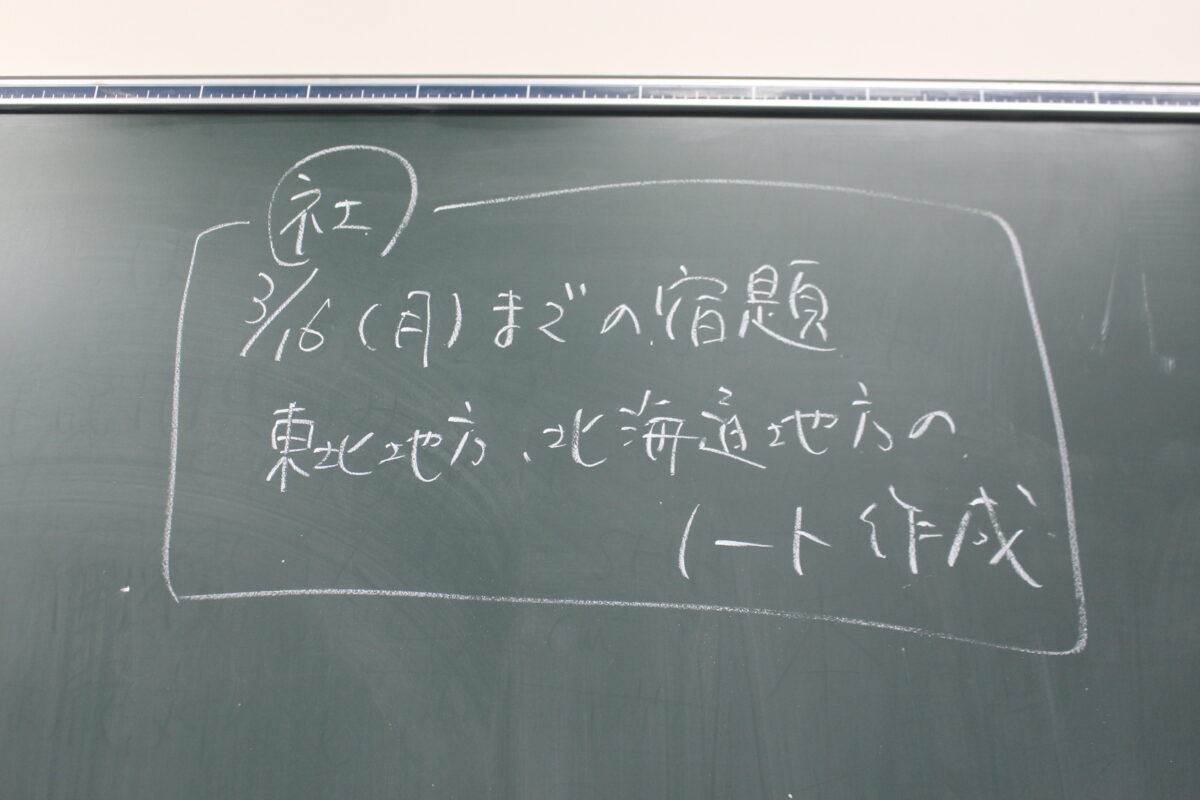 社
3/16(月)までの宿題
東北地方、北海道地方の
ノート作成